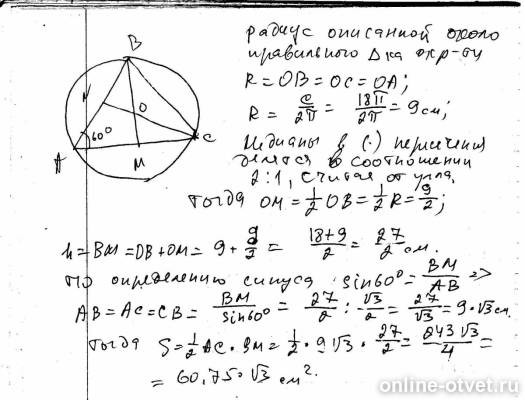 B
радиус описанной около
правильного Δка окр-ти
R = OB = OC = OA;
R = C/2π = 18π/2π = 9 см;
N
O
60°
A
M
C
Медианы в (·) пересечения
делятся в соотношении
2:1, считая от угла,
Тогда OM = 1/2 OB = 1/2 R = 9/2;
h = BM = OB + OM = 9 + 9/2 = 18+9/2 = 27/2 см.
По определению синуса: sin60° = BM/AB =>
AB = AC = CB = BM/sin60° = 27/2 : √3/2 = 27/√3 = 9·√3 см.
Тогда S = 1/2 AC · BM = 1/2 · 9√3 · 27/2 = 243√3/4 =
= 60,75·√3 см².
online-otvet.ru